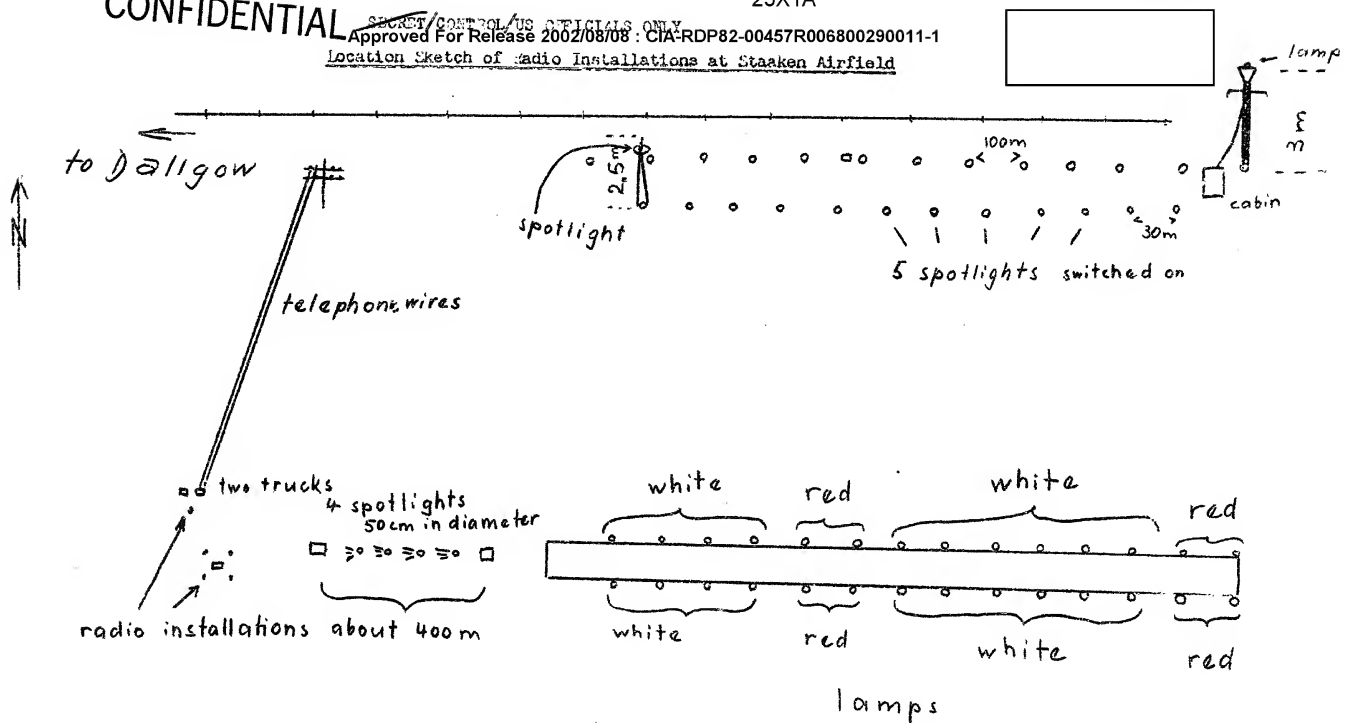 25X1A
CONFIDENTIAL
SECRET/CONTROL/US OFFICIALS ONLY
Approved For Release 2002/08/08 : CIA-RDP82-00457R006800290011-1
Location Sketch of Radio Installations at Staaken Airfield
lamp
to Dallgow
100m
2,5m
m
N
cabin
spotlight
30m
5 spotlights switched on
telephone wires
two trucks
4 spotlights
50cm in diameter
white
red
white
red
radio installations
about 400m
white
red
white
red
lamps